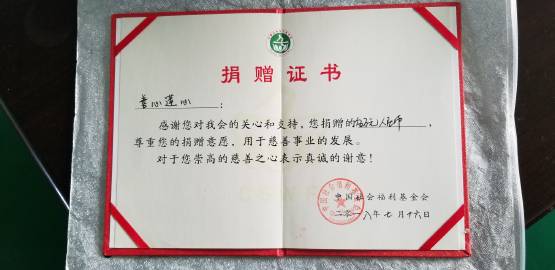 捐赠证书
善心莲心:
感谢您对我会的关心和支持,您捐赠的 人民币,
尊重您的捐赠意愿,用于慈善事业的发展。
对于您崇高的慈善之心表示真诚的谢意!
中国社会福利基金会
二零一八年七月十六日